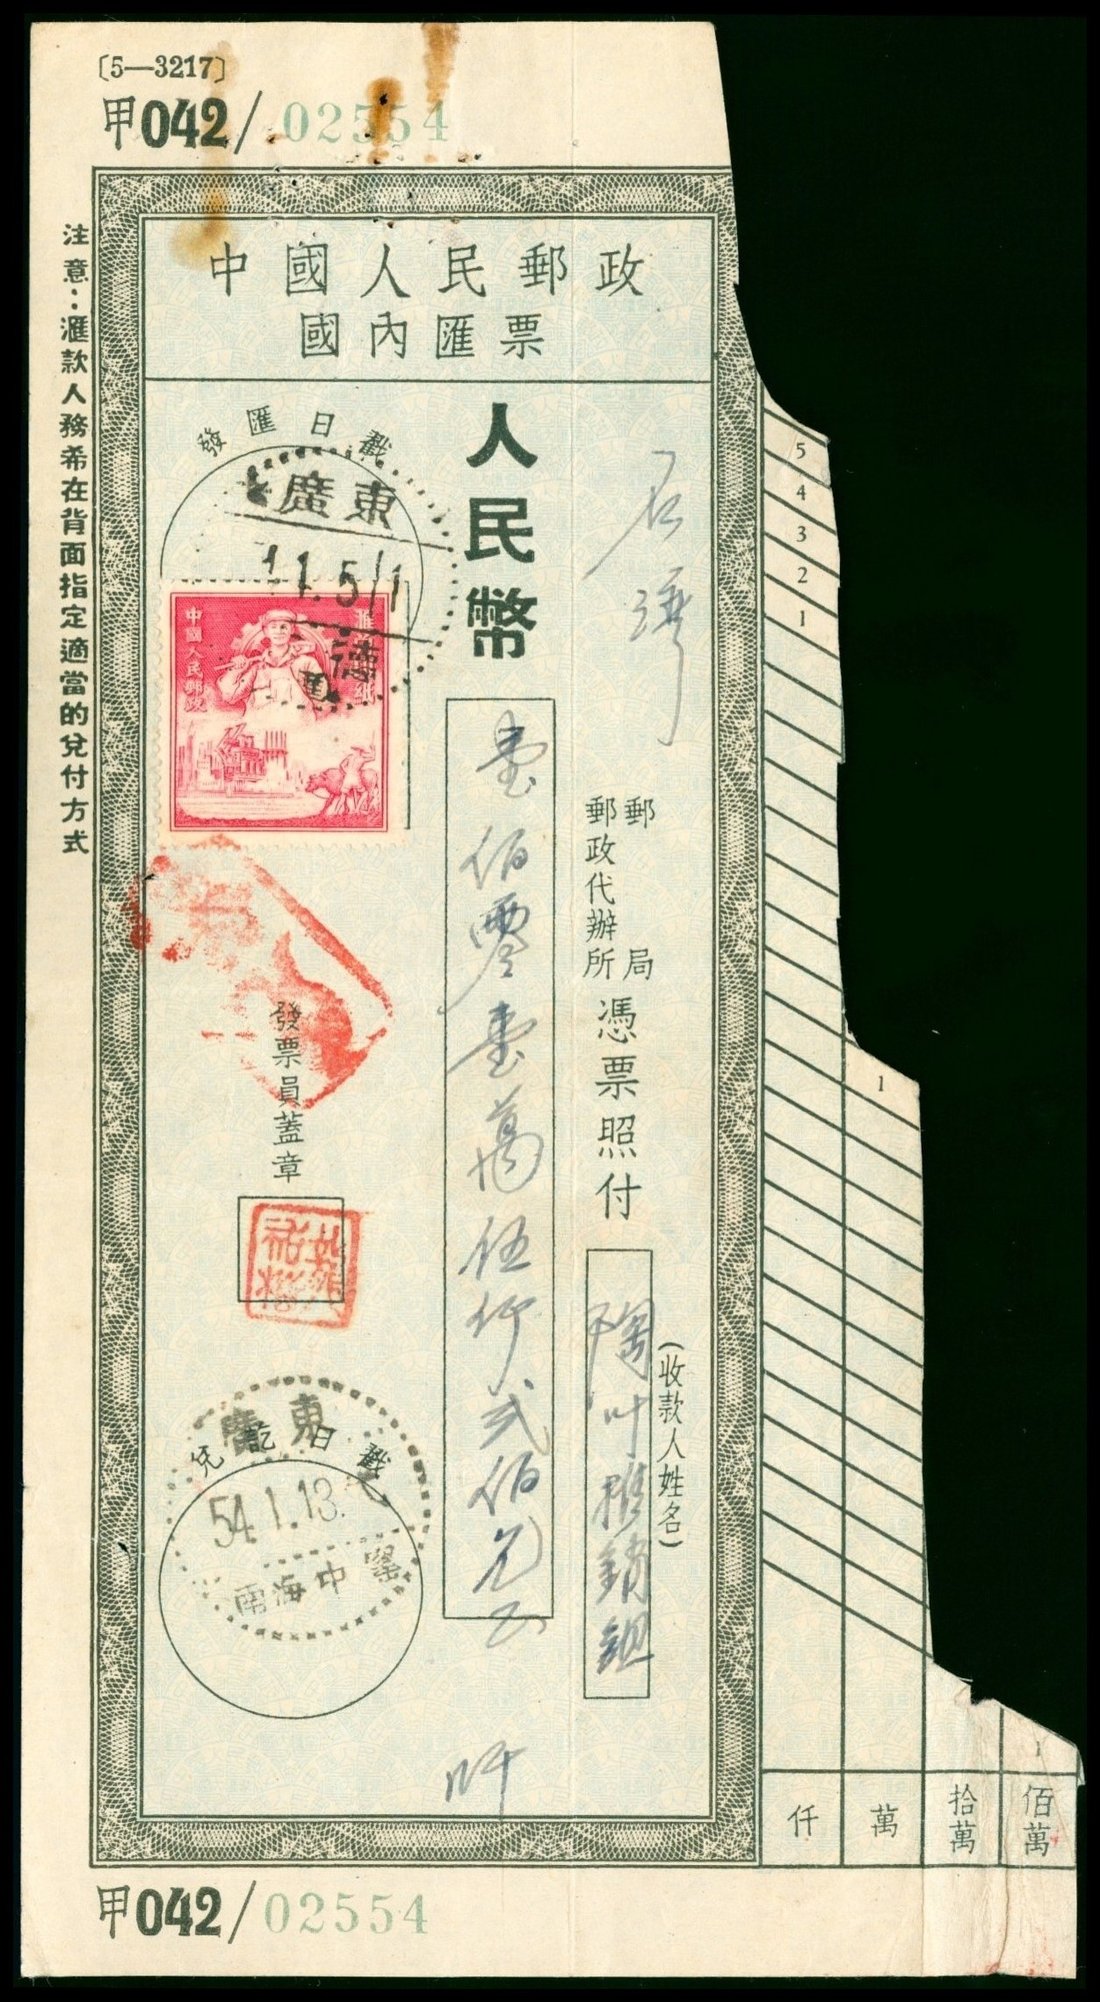 〔5—3217〕
甲042/02554
中國人民郵政
國內匯票
注意：滙款人務希在背面指定適當的兌付方式
石灣
郵局
郵政代辦所
憑票照付
(收款人姓名)
人民幣
壹佰零壹萬伍仟弍佰元正
發匯日戳
廣東
中國人民郵政
發票員蓋章
兌訖日戳
廣東
54.1.13.
南海中
5
4
3
2
1
1
1
仟
萬
拾萬
佰萬
甲042/02554